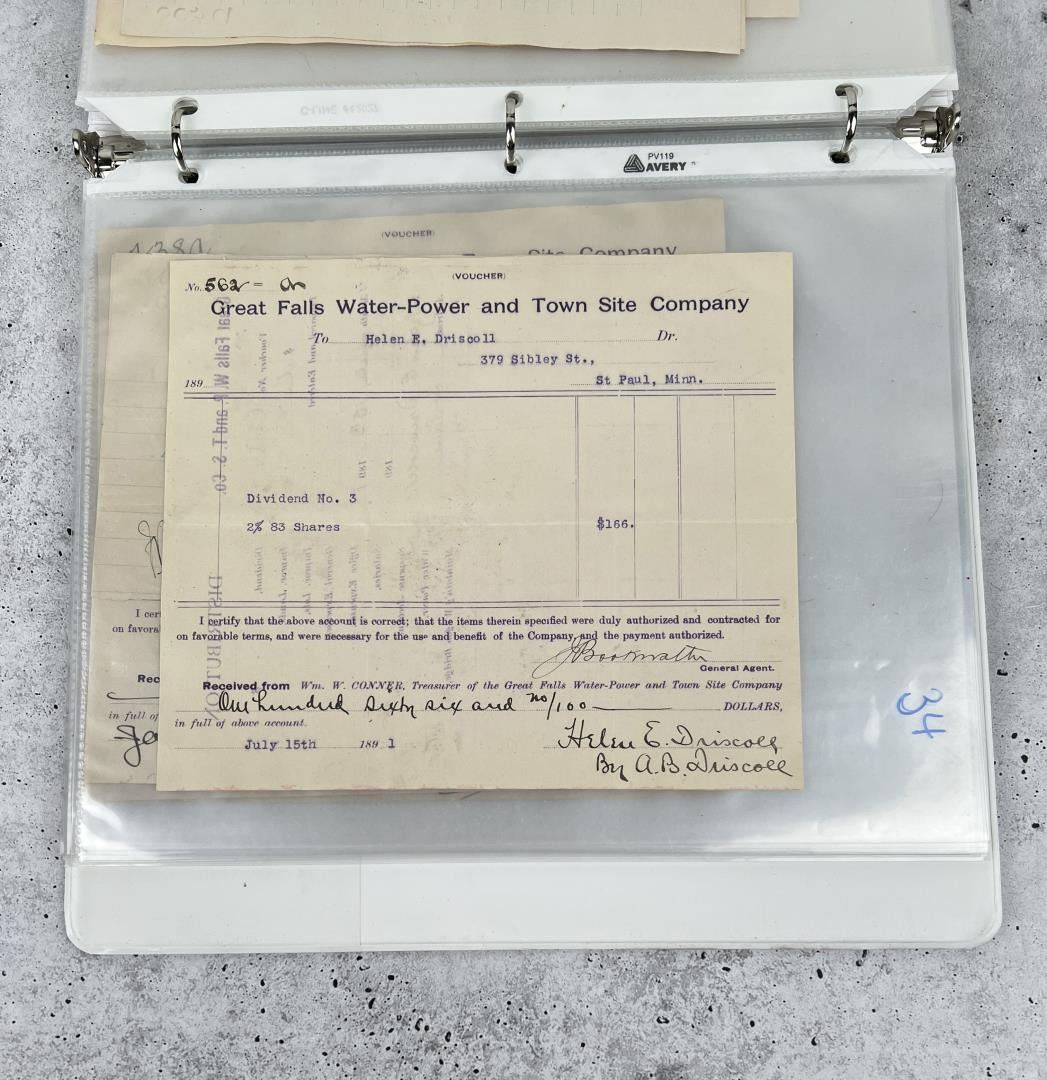 PV119
AVERY
(VOUCHER)
Site Company
(VOUCHER)
No. 562
Great Falls Water-Power and Town Site Company
To Helen E. Driscoll Dr.
379 Sibley St.,
189 St Paul, Minn.
Dividend No. 3
2% 83 Shares $166.
I certify that the above account is correct; that the items therein specified were duly authorized and contracted for
on favorable terms, and were necessary for the use and benefit of the Company, and the payment authorized.
General Agent.
Received from Wm. W. CONNER, Treasurer of the Great Falls Water-Power and Town Site Company
One hundred sixty six and no/100 DOLLARS,
in full of above account.
July 15th 1891
Helen E. Driscoll
By A. B. Driscoll
I cer
on favora
Rec
in full of
34